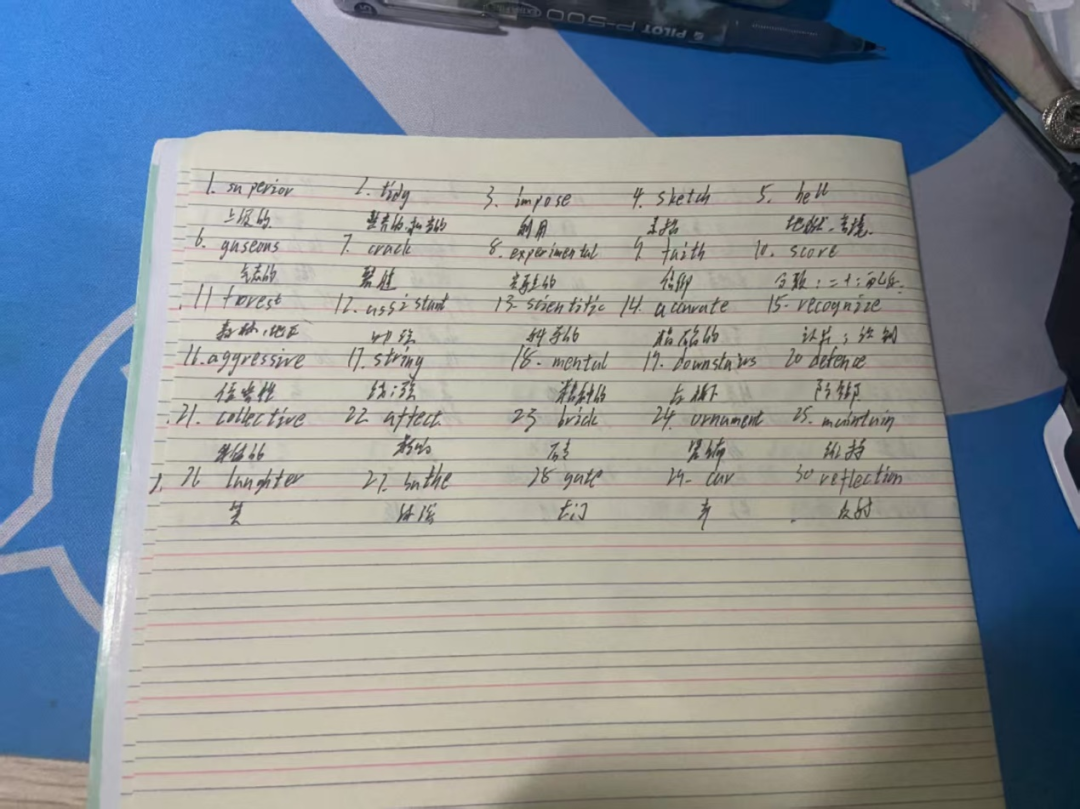 PILOT P-500
1. superior 2. tidy 3. impose 4. sketch 5. hell
上级的 整齐的,和齐的 利用 素描 地狱,苦境.
6. gaseous 7. crack 8. experimental 9. faith 10. score
气态的 裂缝 实验的 信仰 分数;二十;
11 forest 12. assistant 13. scientific 14. accurate 15. recognize
森林,地区 助 科学的 精确的 认出;
16. aggressive 17. string 18. mental 19. downstairs 20 defence
线;弦 精神的 在楼下 防御
21. collective 22 affect 23 brick 24. ornament 25. maintain
集体的 影响 装饰 维持
26 laughter 27. bathe 28 gate 29. car 30 reflection
笑 大门 车 反射